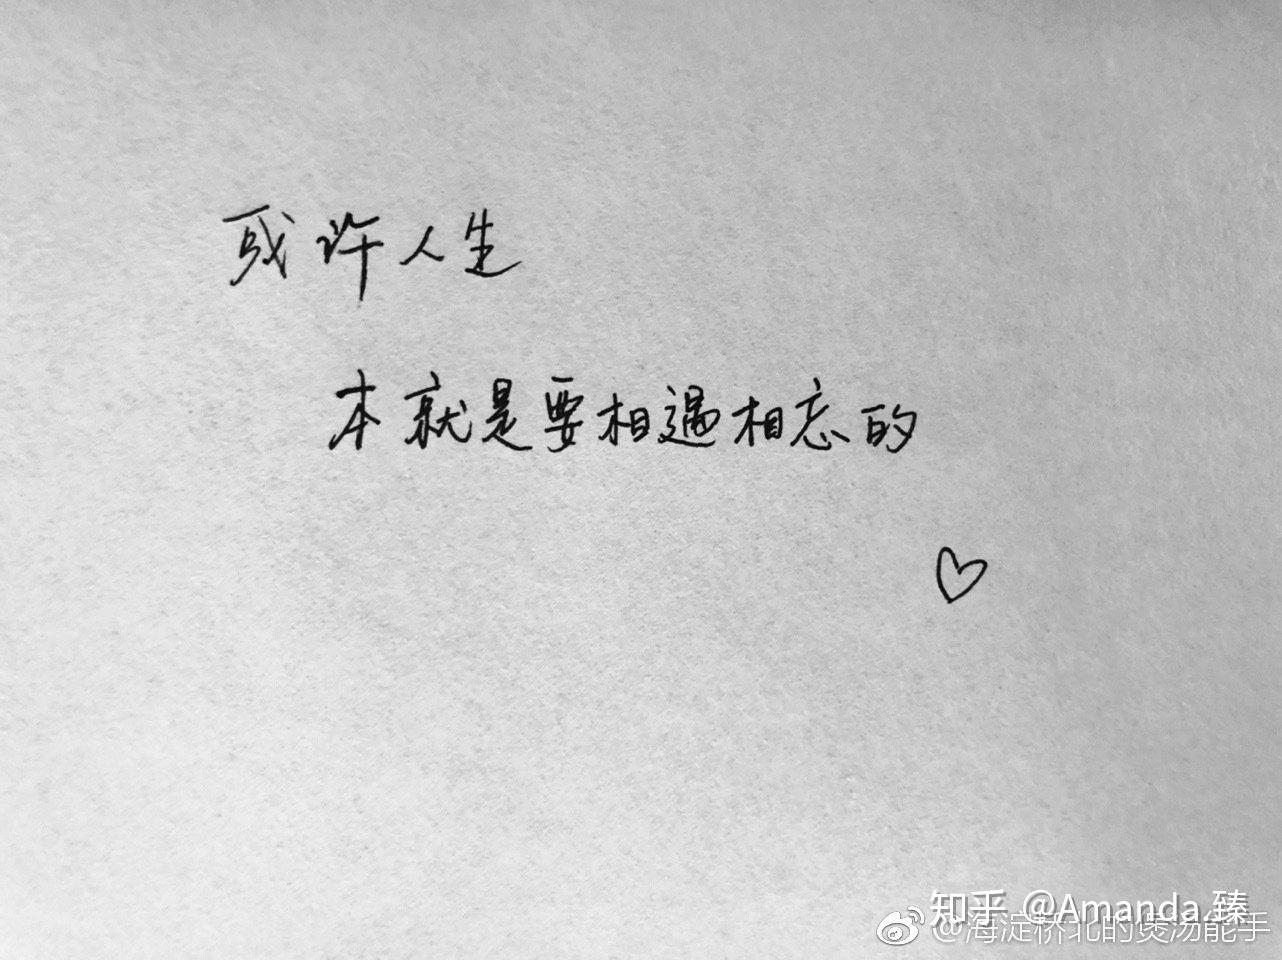 或许人生
本就是要相遇相忘的
知乎 @Amanda.臻
@海淀桥北的煲汤能手